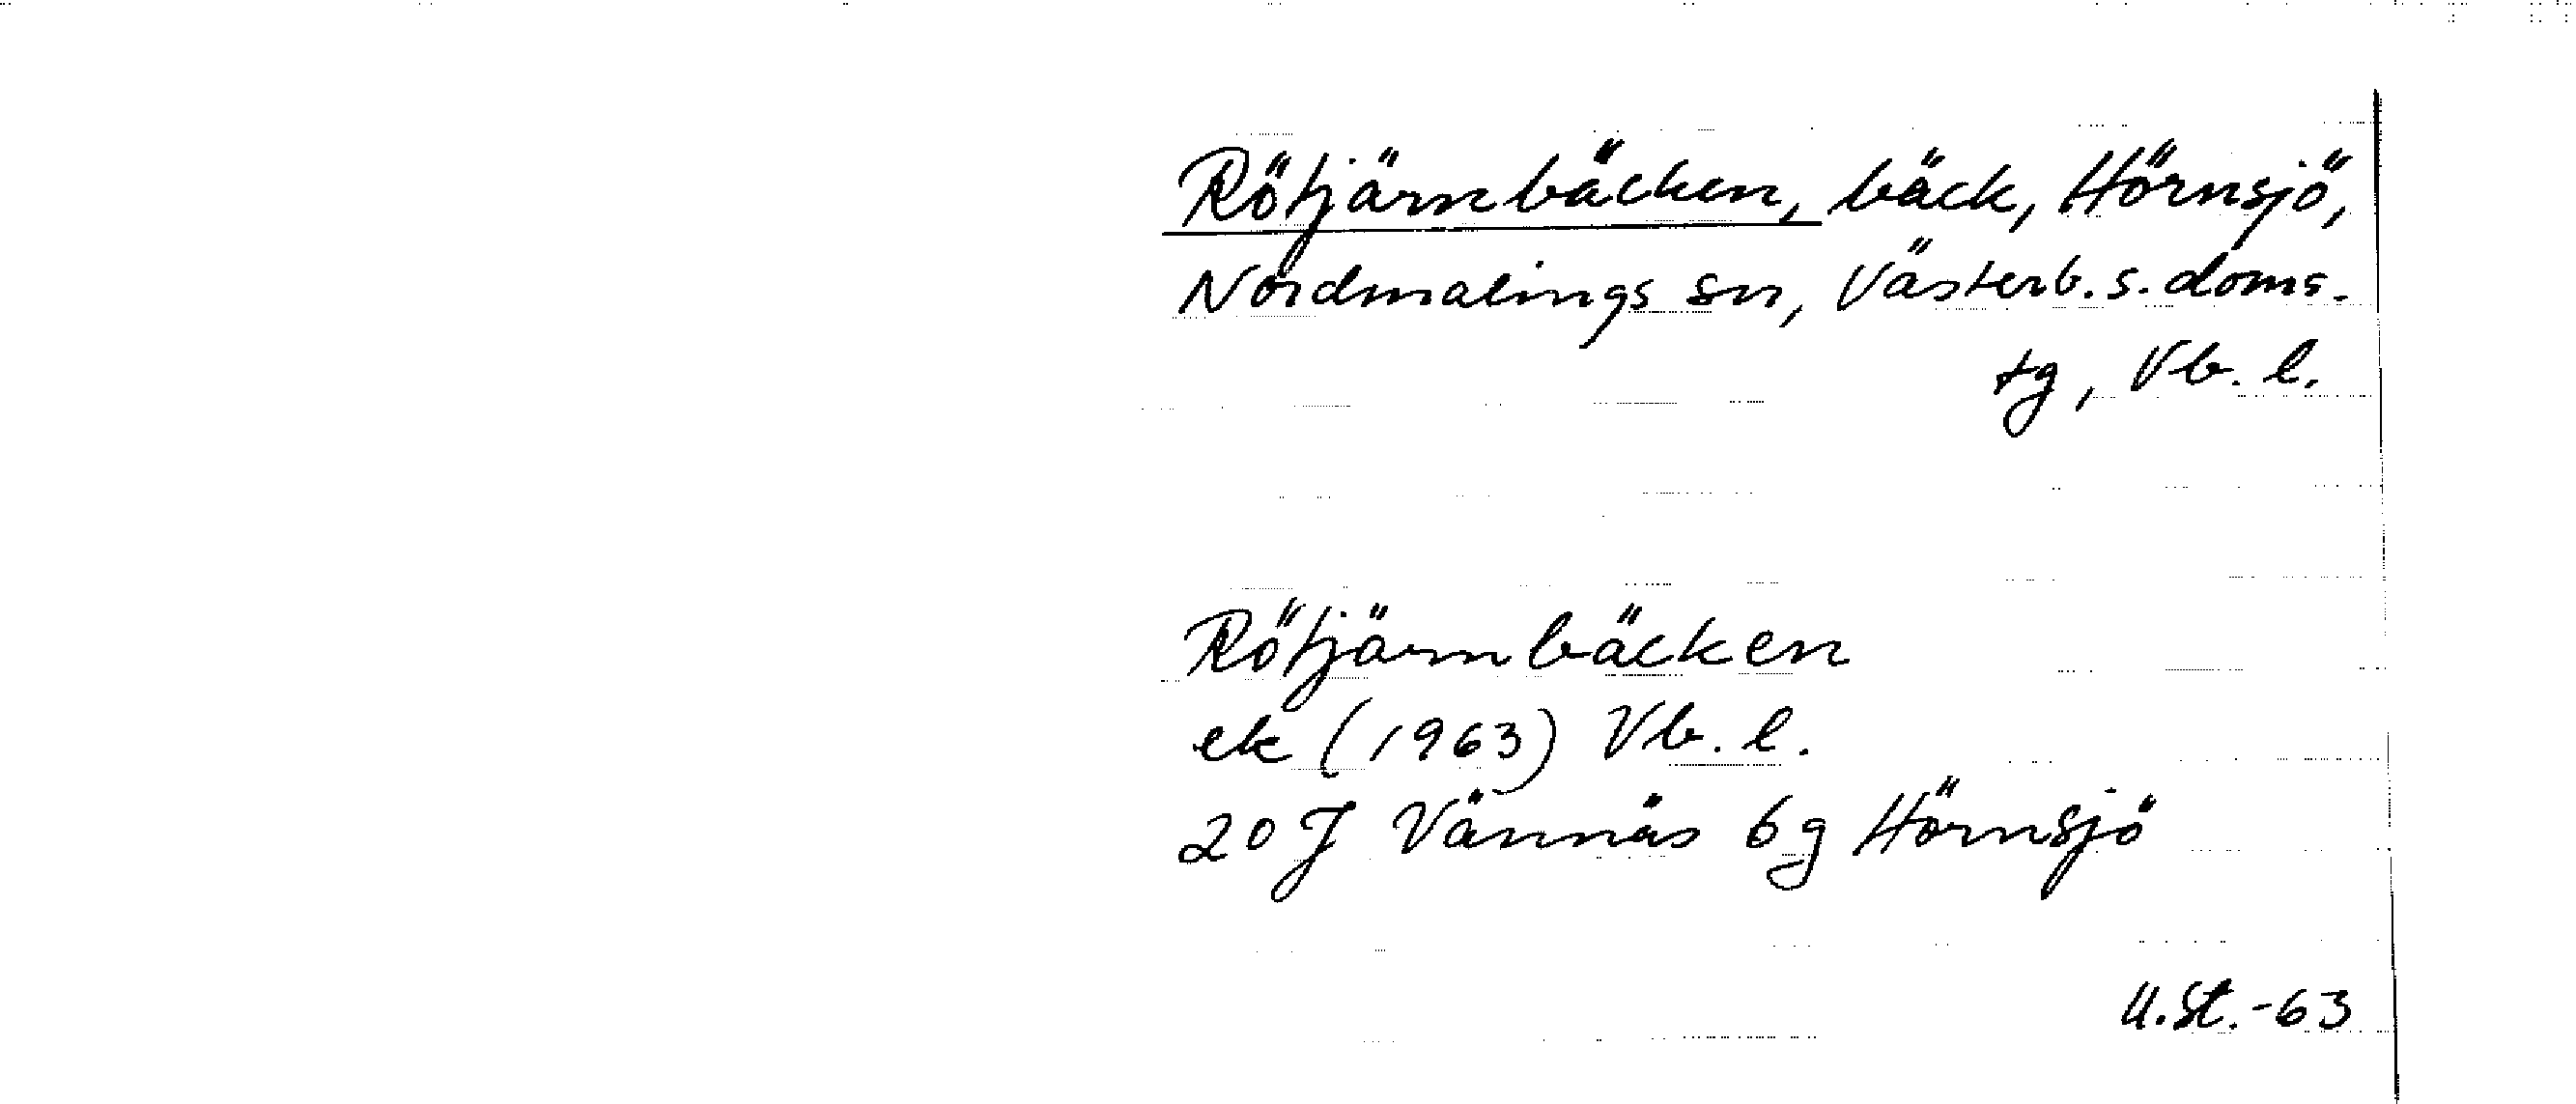 Rötjärnbäcken, bäck, Hörnsjö,
Nordmalings sn, Västerb. s. doms.
tg, Vb. l.
Rötjärnbäcken
ek (1963) Vb. l.
20 J Vännäs 6g Hörnsjö
U.St.-63